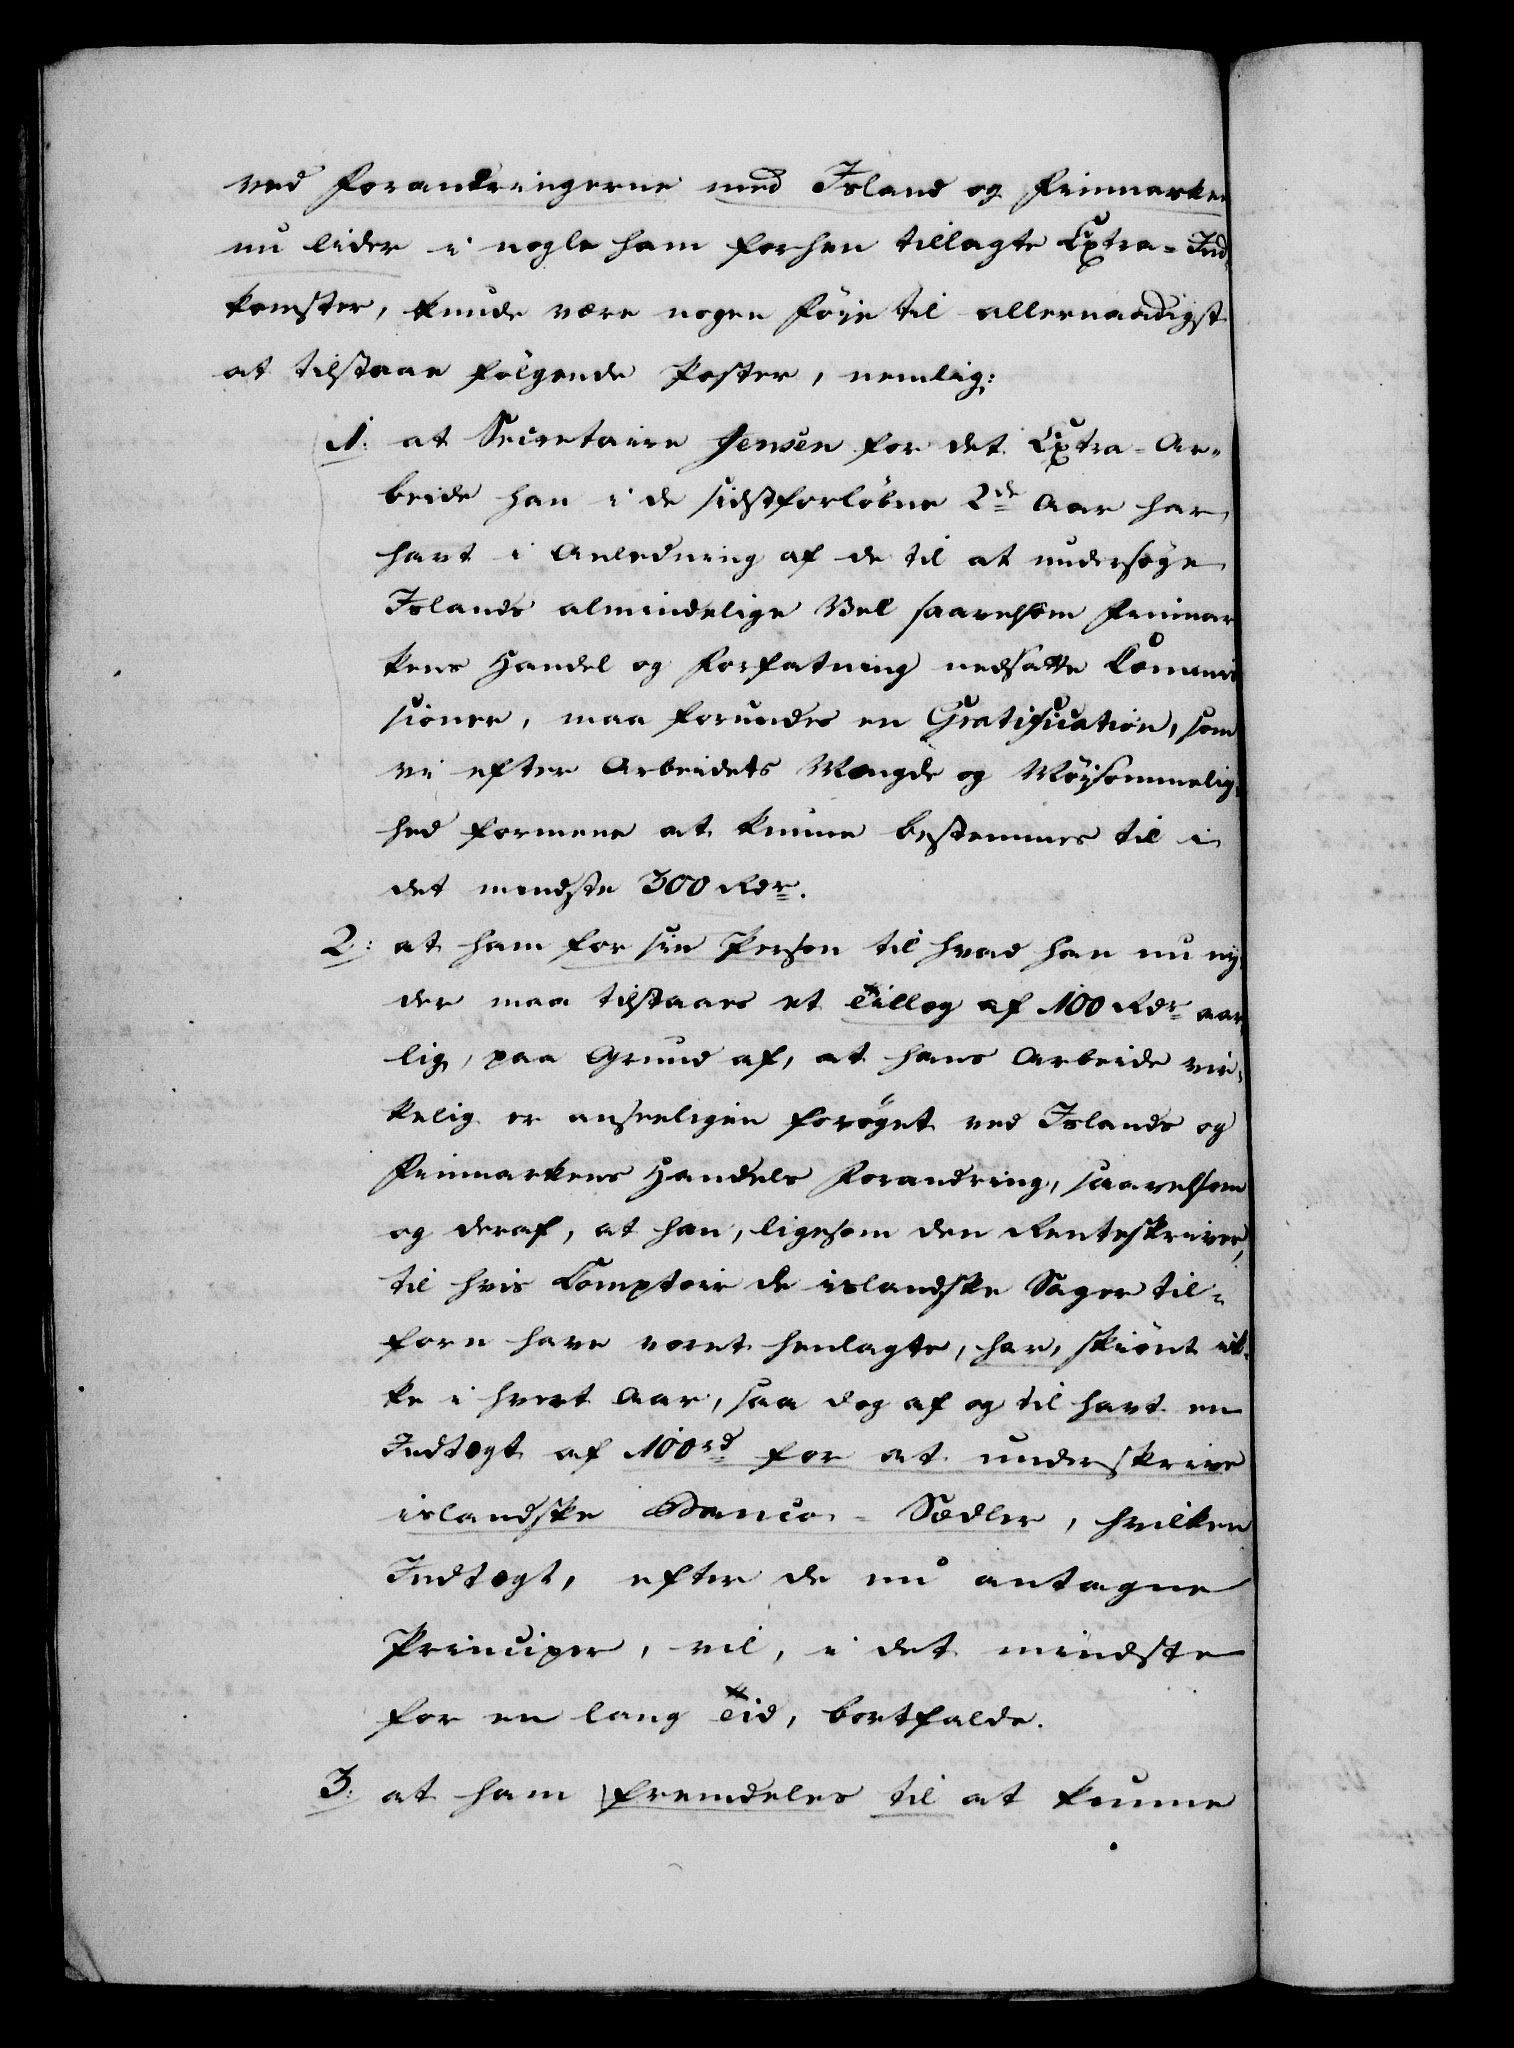 ved Forandringerne med Island og Finmarken
nu lider i nogle ham forhen tillagte Extra-Ind-
komster, kunde være nogen Föje til allernaadigst
at tilstaae følgende Poster, nemlig:
1. at Secretaire Jensen for det Extra-Ar-
beide han i de sidstforløbne 2de Aar har
havt i Anledning af de til at undersøge
Islands almindelige Vel saavelsom Finmar
kens Handel og Forfatning nedsatte Commis
sioner, maa forundes en Gratification, som
vi efter Arbeidets Mængde og Møysommelig-
hed formene at kunne bestemmes til i
det mindste 300 Rdr.
2: at ham for sin Person til hvad han nu ny-
der maa tilstaaes et Tillæg af 100 Rdr aar
lig, paa Grund af, at hans Arbeide vir-
kelig er anseeligen forøget ved Islands og
Finmarkens Handels Forandring, saavelsom
og deraf, at han, ligesom den Renteskriver,
til hvis Comptoir de islandske Sager til-
forn have været henlagte, har, skiönt ik-
ke i hvert Aar, saa dog af og til havt en
Indtægt af 100rd for at underskrive
islandske Banco-Sedler, hvilken
Indtægt, efter de nu antagne
Principer, vil, i det mindste
for en lang Tid, bortfalde.
3. at ham fremdeles til at kunne